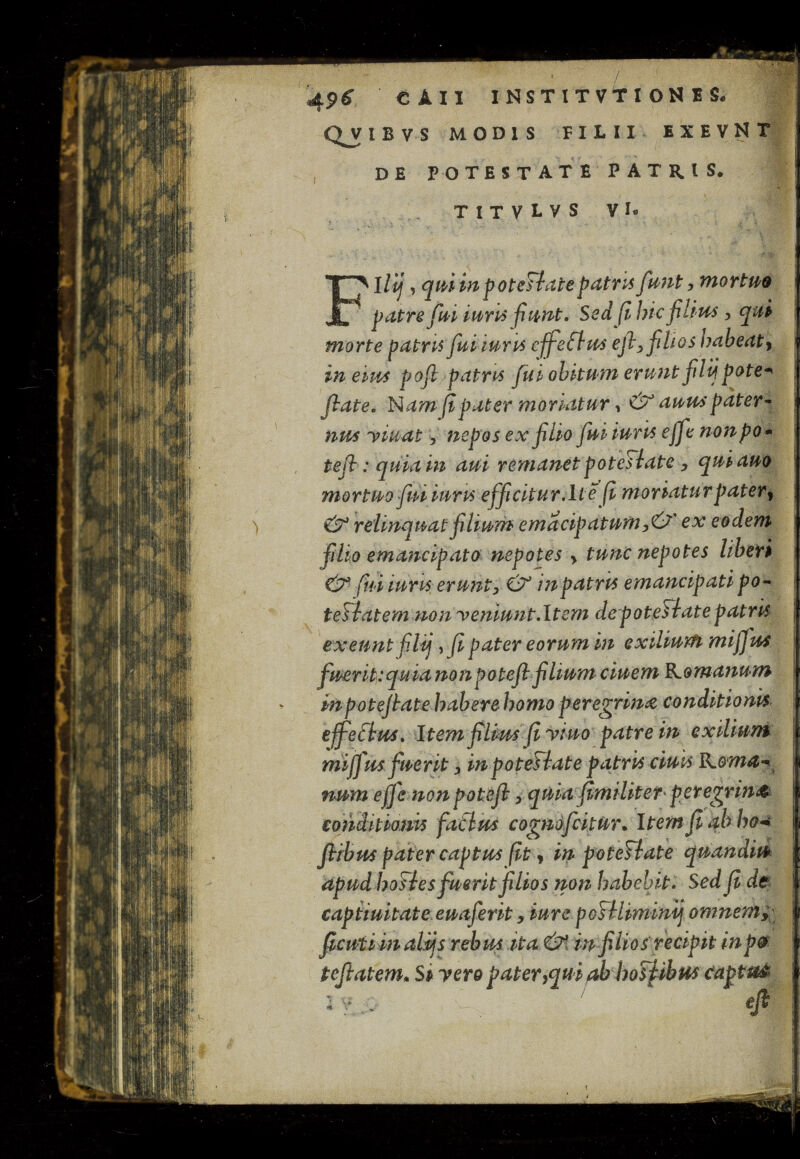 496 CAII INSTITVTIONES.
QVIBVS MODIS FILII EXEVNT
DE POTESTATE PATRIS.
TITVLVS VI.
FIlij, qui in potestate patris sunt, mortuo
patre sui iuris fiunt. Sed si hic filius, qui
morte patris sui iuris effectus est, filios habeat,
in eius post patris sui obitum erunt filij pote-
state. Nam si pater moriatur, & auus pater-
nus viuat, nepos ex filio sui iuris esse non po-
test: quia in aui remanet potestate, qui auo
mortuo sui iuris efficitur. Itē si moriatur pater,
& relinquat filium emācipatum, & ex eodem
filio emancipato nepotes, tunc nepotes liberi
& sui iuris erunt, & in patris emancipati po-
testatem non veniunt. Item de potestate patris
exeunt filij, si pater eorum in exilium missus
fuerit: quia non potest filium ciuem Romanum
in potestate habere homo peregrinæ conditionis
effectus. Item filius si viuo patre in exilium
missus fuerit, in potestate patris ciuis Roma-
num esse non potest, quia similiter peregrinæ
conditionis factus cognoscitur. Item si ab ho-
stibus pater captus sit, in potestate quandiu
apud hostes fuerit filios non habebit. Sed si de
captiuitate euaserit, iure postliminij omnem,
sicuti in alijs rebus ita & in filios recipit in po
testatem. Si vero pater, qui ab hostibus captus
est